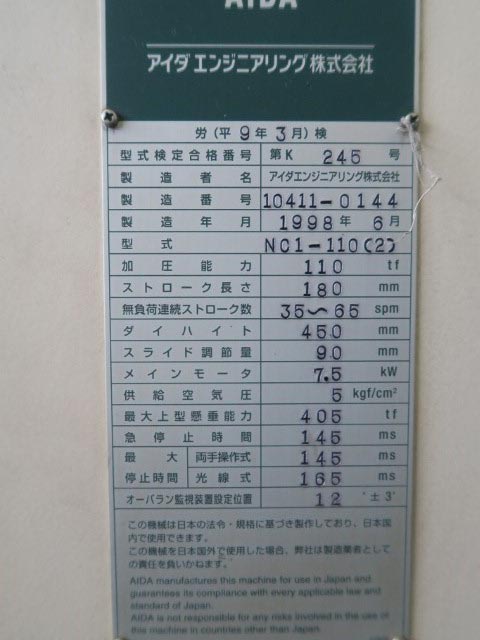 AIDA
アイダエンジニアリング株式会社
労(平 9 年 3 月)検
型式検定合格番号 第K 245 号
製造者名 アイダエンジニアリング株式会社
製造番号 10411-0144
製造年月 1998 年 6 月
型式 NC1-110(2)
加圧能力 110 tf
ストローク長さ 180 mm
無負荷連続ストローク数 35~65 spm
ダイハイト 450 mm
スライド調節量 90 mm
メインモータ 7.5 kW
供給空気圧 5 kgf/cm²
最大上型懸垂能力 405 tf
急停止時間 145 ms
最大 両手操作式 145 ms
停止時間 光線式 165 ms
オーバラン監視装置設定位置 12 °±3°
この機械は日本の法令・規格に基づき製作しており、日本国
内で使用できます。
この機械を日本国外で使用した場合、弊社は製造業者として
の責任を負いかねます。
AIDA manufactures this machine for use in Japan and
guarantees its compliance with every applicable law and
standard of Japan.
AIDA is not responsible for any risks involved in the use of
this machine in countries other than Japan.